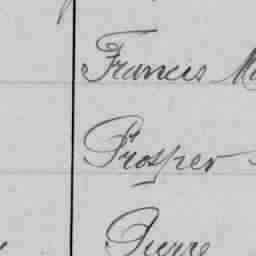 Francis
Prosper
Pierre